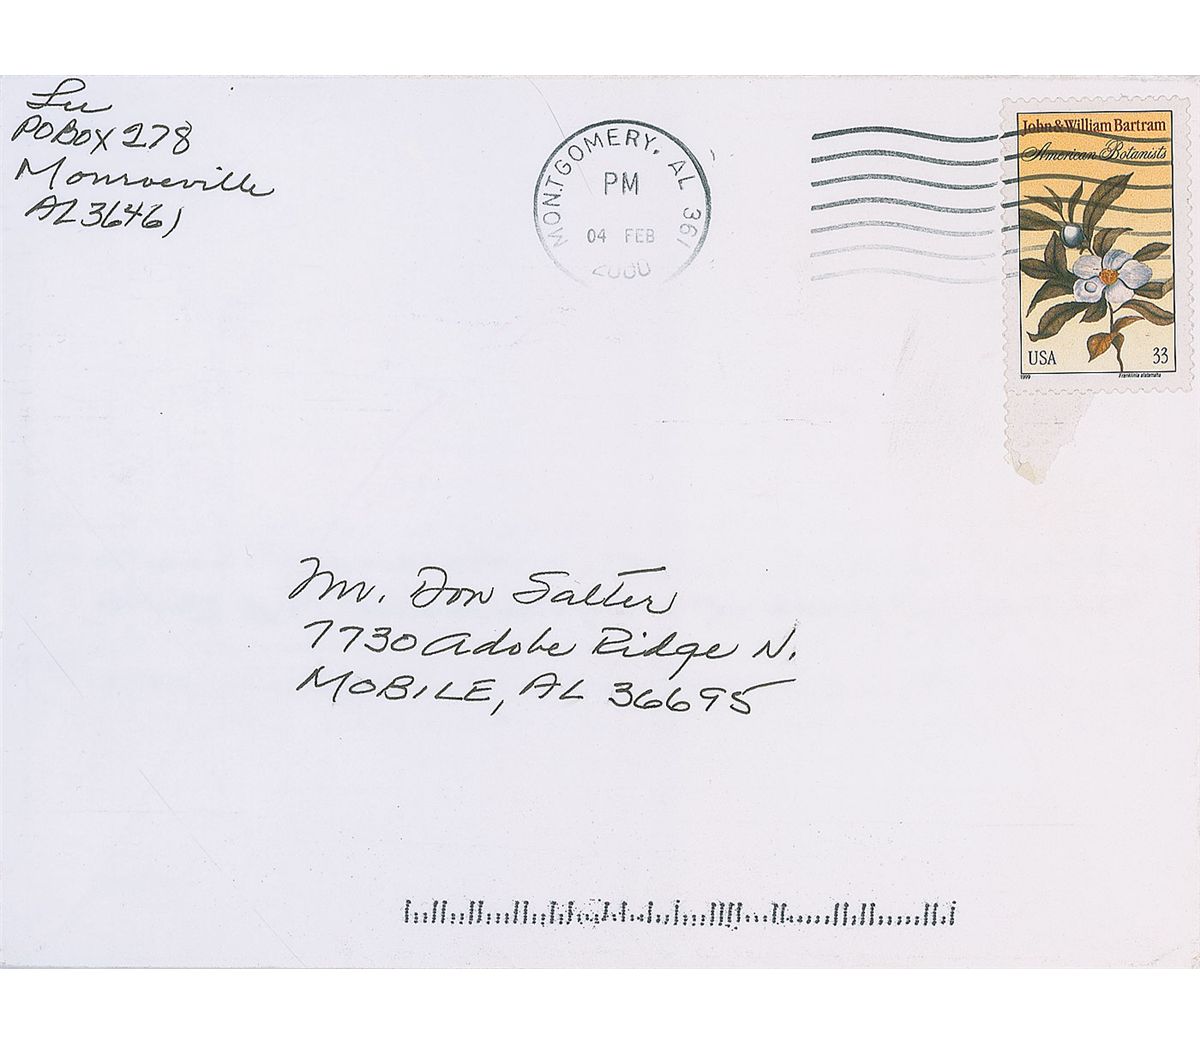 Lee
PO BOX 278
Monroeville
AL 36461
MONTGOMERY, AL 361
PM
04 FEB
2000
John & William Bartram
American Botanists
USA 33
1999 Franklinia alatamaha
Mr. Don Salter
7730 Adobe Ridge N.
MOBILE, AL 36695